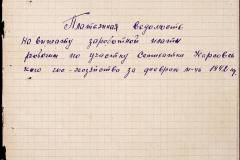 Платежная ведомость
На выплату заработной платы
рабочим по участку
гос-хозяйства за февраль м-ць 1942 г.